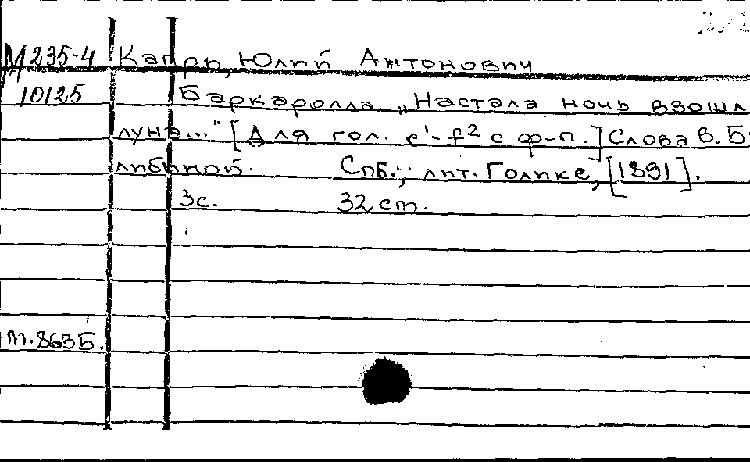 М235-4 Капри, Юлий Антонович
10125 Баркаролла „Настала ночь взошл
луна..." [Для гол. e¹-f² с ф-п.] Слова В. Б
либиной. Спб., лит. Голике, [1891].
3с. 32 cm.
т.863Б.